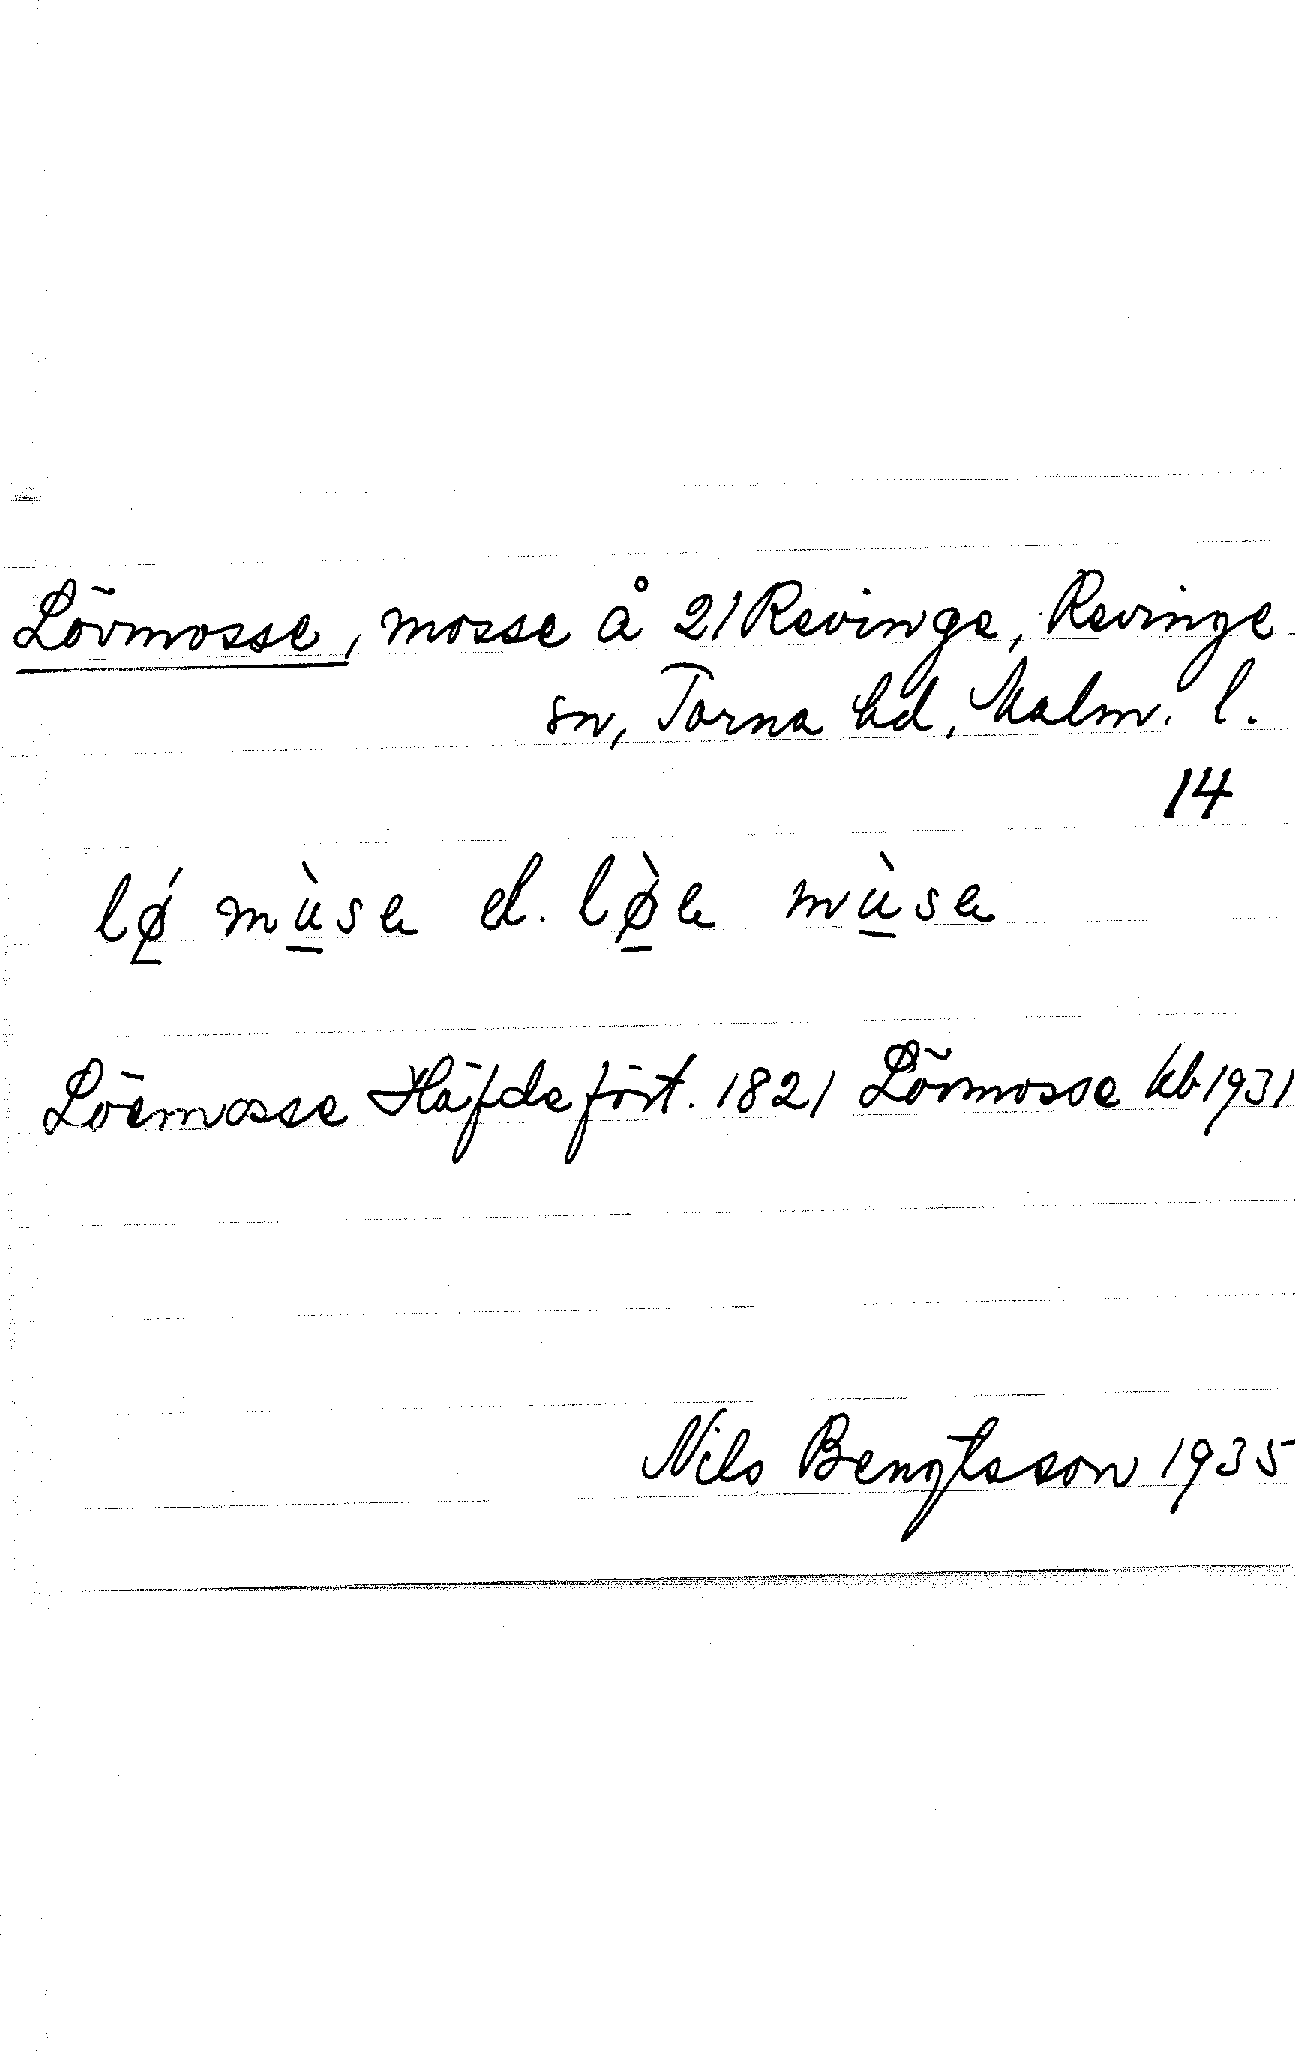 Lövmosse, mosse å 21 Revinge, Revinge
sn, Torna hd, Malm. l.
14
lǿ mùsa el. lø̀a mùsa
Löemosse Häfdefört. 1821 Lövmosse kb 1931
Nils Bengtsson 1935